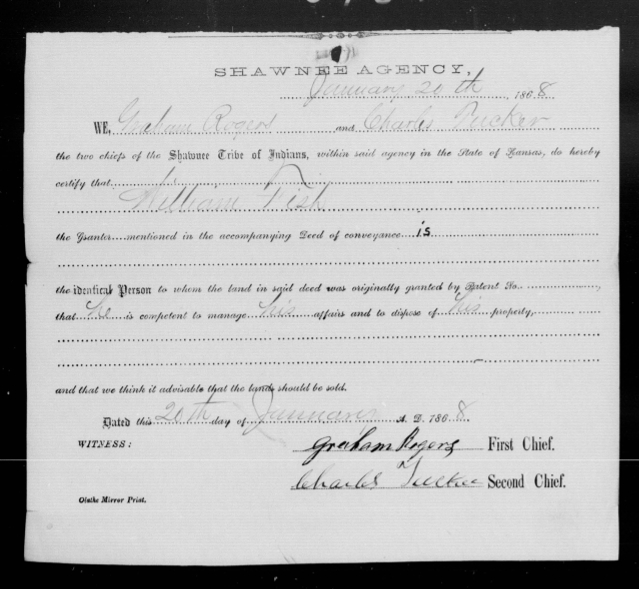 SHAWNEE AGENCY,
January 20th 1868
WE, Graham Rogers and Charles Tucker
the two chiefs of the Shawnee Tribe of Indians, within said agency in the State of Kansas, do hereby
certify that
William Fish
the Grantor mentioned in the accompanying Deed of conveyance is
the identical Person to whom the land in said deed was originally granted by Patent No.
that he is competent to manage his affairs and to dispose of his property,
and that we think it advisable that the lands should be sold.
Dated this 20th day of January A. D. 1868.
WITNESS:
Graham Rogers First Chief.
Charles Tucker Second Chief.
Olathe Mirror Print.